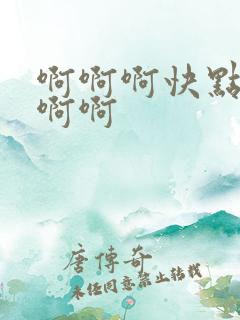 啊啊啊快點
啊啊
唐傳奇
未經同意禁止轉載